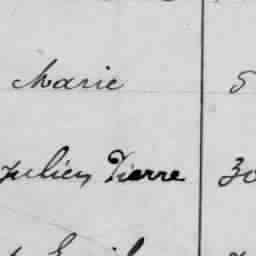 Marie 5
Julien Pierre 30